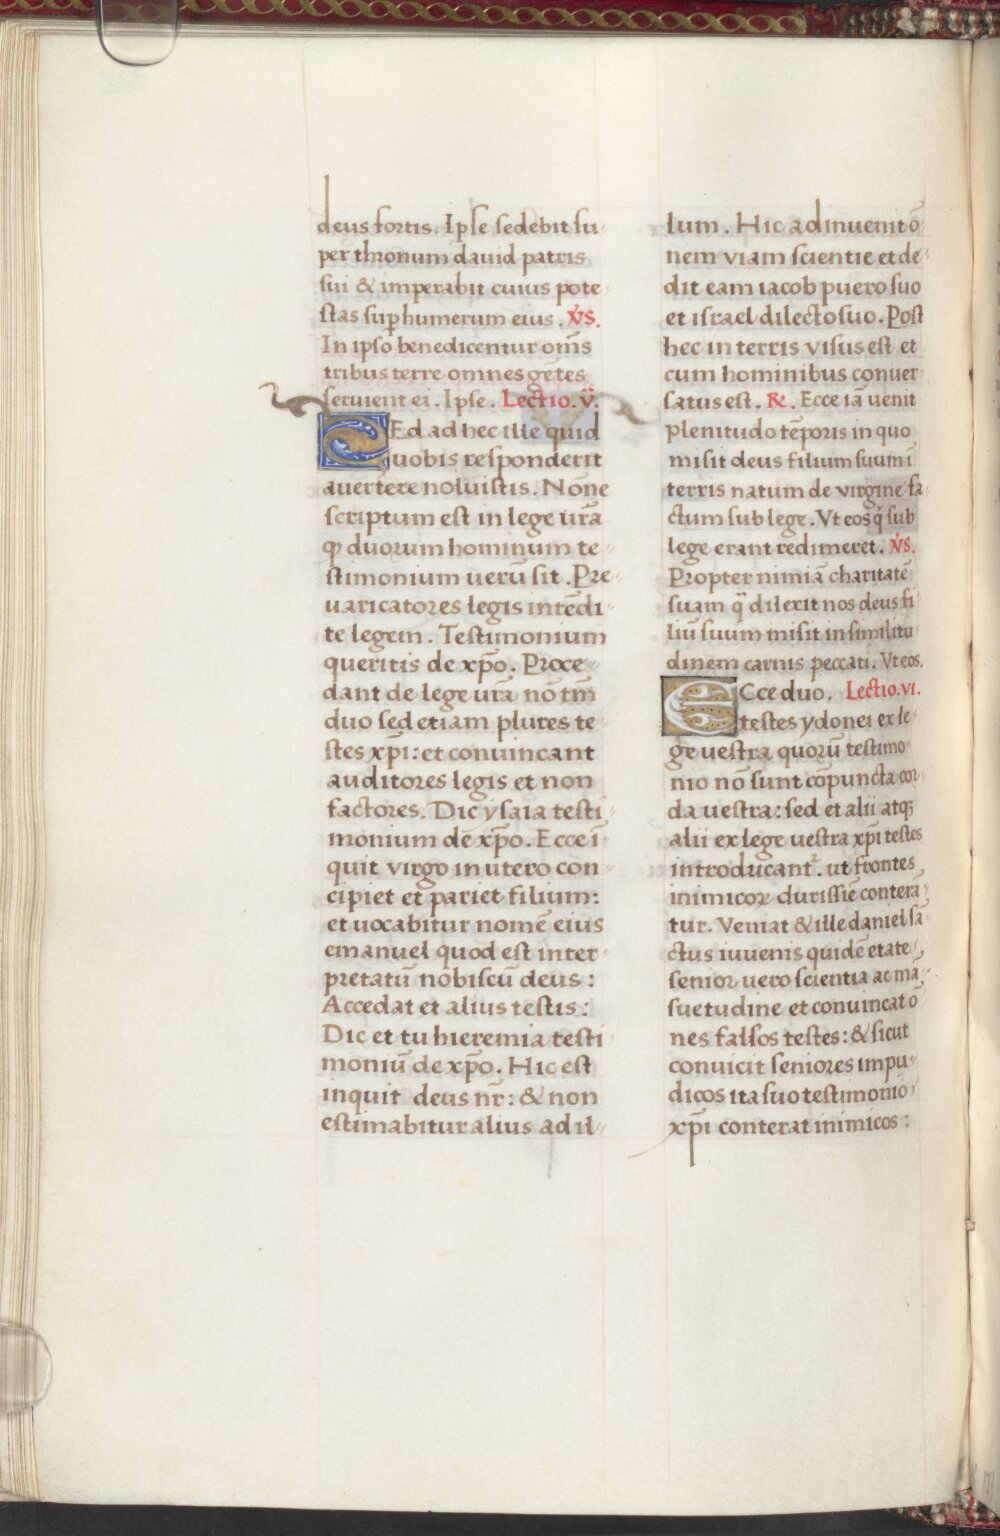 deus fortis. Ipse sedebit su
per thronum dauid patris
sui & imperabit cuius pote
stas sup humerum eius. V̇S.
In ipso benedicentur om̄s
tribus terre omnes gētes
seruient ei. Ipse. Lectio. v̈.
SEd ad hec ille quid
uobis responderit
auertere noluistis. Nōne
scriptum est in lege ur̄a
ꝙ duorum hominum te
stimonium uerū sit. Pre
uaricatores legis intēdi
te legem. Testimonium
queritis de xp̄o. Proce
dant de lege ur̄a nō tm̄
duo sed etiam plures te
stes xp̄i: et conuincant
auditores legis et non
factores. Dic ysaia testi
monium de xp̄o. Ecce ī
quit virgo in utero con
cipiet et pariet filium:
et uocabitur nomē eius
emanuel quod est inter
pretatū nobiscū deus:
Accedat et alius testis:
Dic et tu hieremia testi
moniū de xp̄o. Hic est
inquit deus nr̄: & non
estimabitur alius ad il
lum. Hic adinuenit ō
nem viam scientie et de
dit eam iacob puero suo
et israel dilecto suo. Post
hec in terris visus est et
cum hominibus conuer
satus est. ℟. Ecce iā uenit
plenitudo tēporis in quo
misit deus filium suum ī
terris natum de virgine fa
ctum sub lege. Vt eos q̇ sub
lege erant redimeret. V̇S.
Propter nimiā charitatē
suam q̄ dilexit nos deus fi
liū suum misit in similitu
dinem carnis peccati. Vt eos.
ECce duo. Lectio. vi.
testes ydonei ex le
ge uestra quorū testimo
nio nō sunt cōpuncta cor
da uestra: sed et alii atqꝫ
alii ex lege uestra xp̄i testes
introducant᷑. ut frontes
inimicoꝝ durissiē conterā
tur. Veniat & ille daniel sā
ctus iuuenis quidē etate
senior uero scientia ac mā
suetudine et conuincat ō
nes falsos testes: & sicut
conuicit seniores impu
dicos ita suo testimonio
xp̄i conterat inimicos: